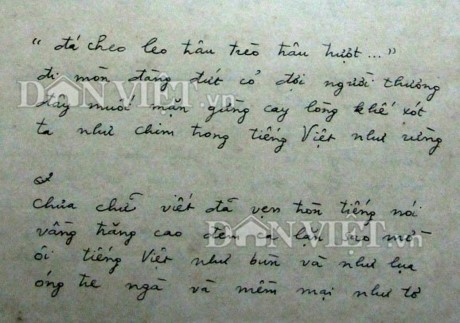 “đá cheo leo trâu trèo trâu trượt ...”
đi mòn đàng đứt cỏ đợi người thương
đây muối mặn gừng cay lòng khế xót
ta như chim trong tiếng Việt như rừng
2
Chưa chữ viết đã vẹn tròn tiếng nói
vầng trăng cao đêm cá lặn sao mờ
ôi tiếng Việt như bùn và như lụa
óng tre ngà và mềm mại như tơ
DÂN VIỆT.vn
DÂN VIỆT.vn